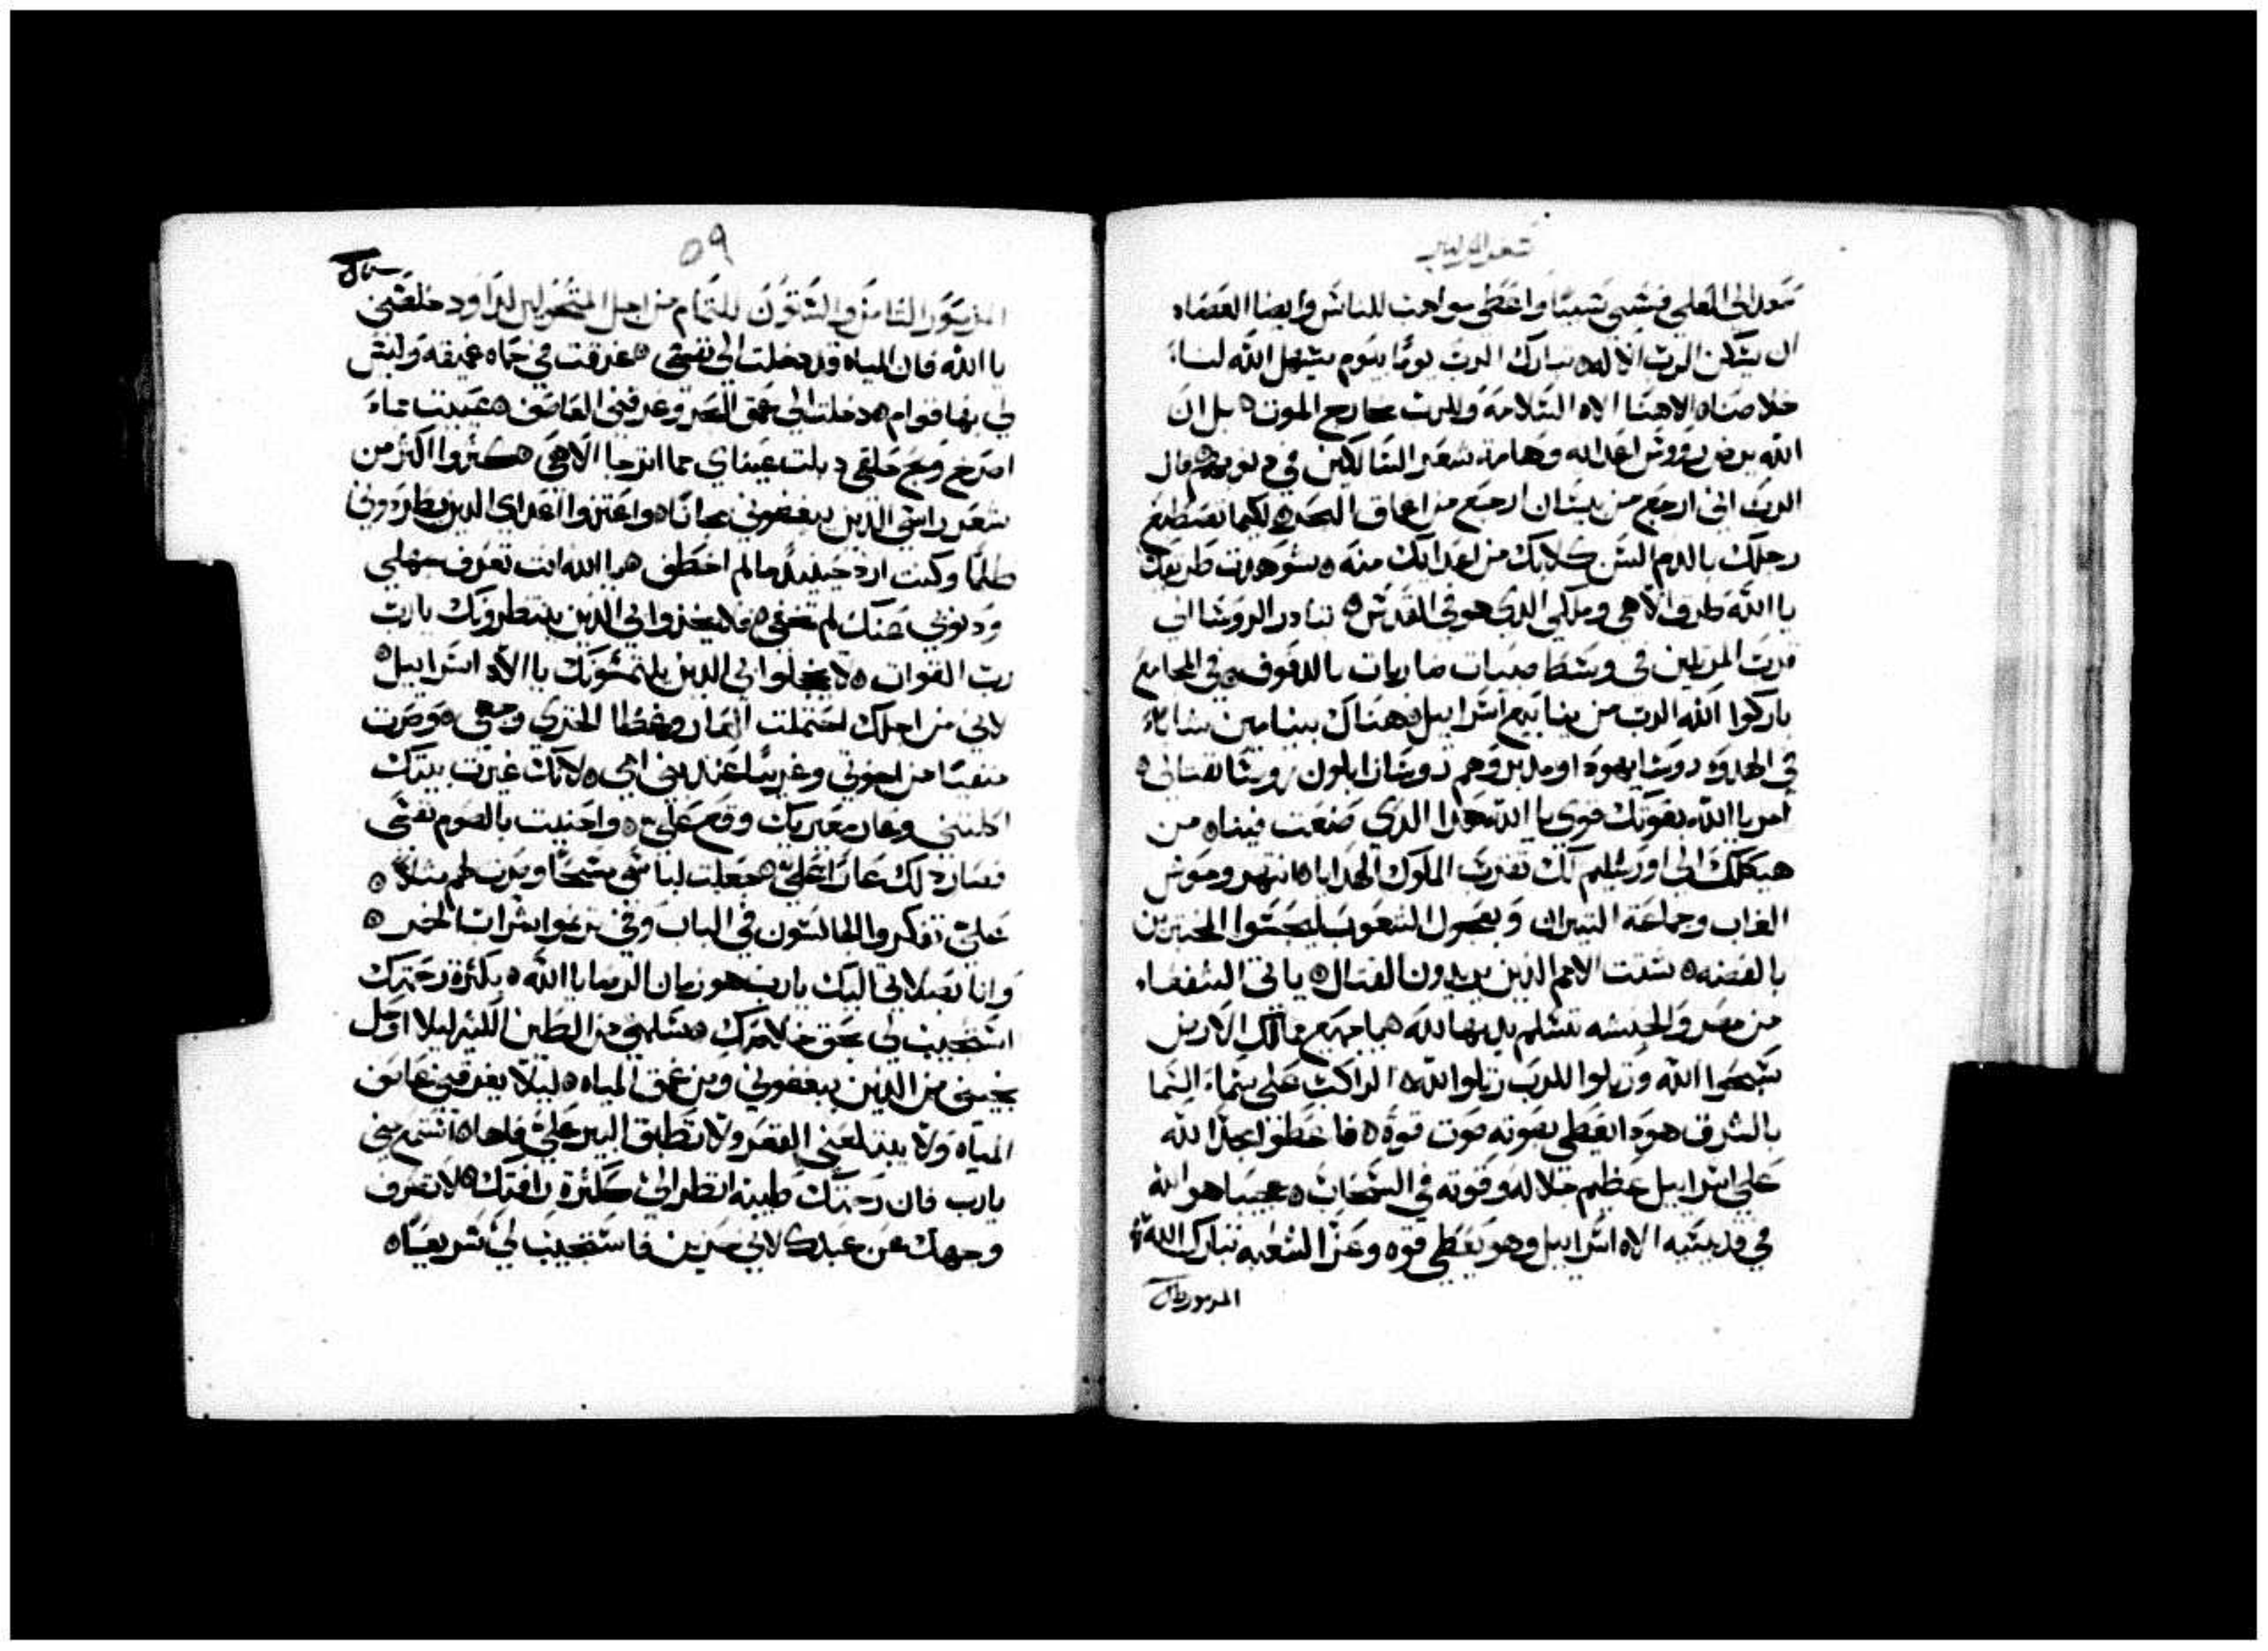 صعد الى العلى فسبي سبيًا واعطى مواهب للناس وايضا العصاه
ان يسكن الرب الاله ه تبارك الرب يومًا بيوم يسهل الله لنا
خلاصنا ه الاهنا الاه السلامه وللرب مخارج الموت ه بل ان
الله يرض رووس اعدايه وهامة شعر السالكين في ذنوبهم ه قال
الرب اني ارجع من بيسان ارجع من اعماق البحر ه لكيما تصطبغ
رجلك بالدم السن كلابك من اعدايك منه ه شوهدت طريقك
يا الله طرق الاهي وملكي الذي هو في القدس ه تبادر الروسا الى
قرب المرتلين في وسط صبيات ضاربات بالدفوف ه في المجامع
باركوا الله الرب من ينابيع اسراييل ه هناك بينامين شابا
في الهدوء روسا يهوذا ومدبروهم روسا زابلون روسا نفتالي ه
امر يا الله بقوتك قوي يا الله هذا الذي صنعت فينا ه من
هيكلك الى اورشليم لك تقرب الملوك الهدايا ه انتهر وحوش
الغاب وجماعة التيران وبعجول الشعوب ليحبسوا المختبرين
بالفضه ه شتت الامم الذين يريدون القتال ه ياتي الشفعاء
من مصر والحبشه تسلم يديها لله ه يا جميع ممالك الارض
سبحوا الله ورتلوا للرب رتلوا لله ه الراكب على سماء السما
بالشرق هوذا يعطي بصوته صوت قوة ه فاعطوا مجدًا لله
على اسراييل عظيم جلاله وقوته في السحاب ه عجيبا هو الله
في قديسيه الاه اسراييل وهو يعطي قوه وعزا لشعبه تبارك الله
المزمور
٥٩
المزمور الثامن والستون للتمام من اجل المتغيرين لداود خلصني
يا الله فان المياه قد دخلت الى نفسي ه غرقت في حماه عميقه وليس
لي بها قوام ه دخلت الى عمق البحر وغرقني العاصف ه عييت مما
اصرخ وبح حلقي ذبلت عيناي مما اترجا الاهي ه كثروا اكثر من
شعر راسي الذين يبغضوني مجانًا ه واعتزوا اعداي الذين يطردوني
ظلمًا وكنت ارد حينيذٍ ما لم اخطف ه يا الله انت تعرف جهلي
وذنوبي عنك لم تخفى ه فلا يخزوا بي الذين ينتظرونك يا رب
رب القوات ه لا يخجلوا بي الذين يلتمسونك يا الاه اسراييل ه
لاني من اجلك احتملت العار وغطا الخزي وجهي ه وصرت
منفيًا من اخوتي وغريبًا عند بني امي ه لان غيرت بيتك
اكلتني وعار معيريك وقع علي ه واحنيت بالصوم نفسي
فصار ذلك عارًا علي ه جعلت لباسي مسحًا وصرت لهم مثلا ه
علي تفكروا الجالسون في الباب وفي ترنموا شراب الخمر ه
وانا بصلاتي اليك يا رب هو زمان الرضا يا الله ه بكثرة رحمتك
استجيب لي بحق خلاصك ه سلمني من الطين الكيلا اوحل
نجيني من الذين يبغضوني ومن عمق المياه ه ليلا يغرقني عاصف
المياه ولا يبتلعني القعر ولا تطبق البير علي فاها ه استمع مني
يا رب فان رحمتك طيبه انظر الي ككثرة رافتك ه لا تصرف
وجهك عن عبدك لاني حزين فاستجيب لي سريعًا ه